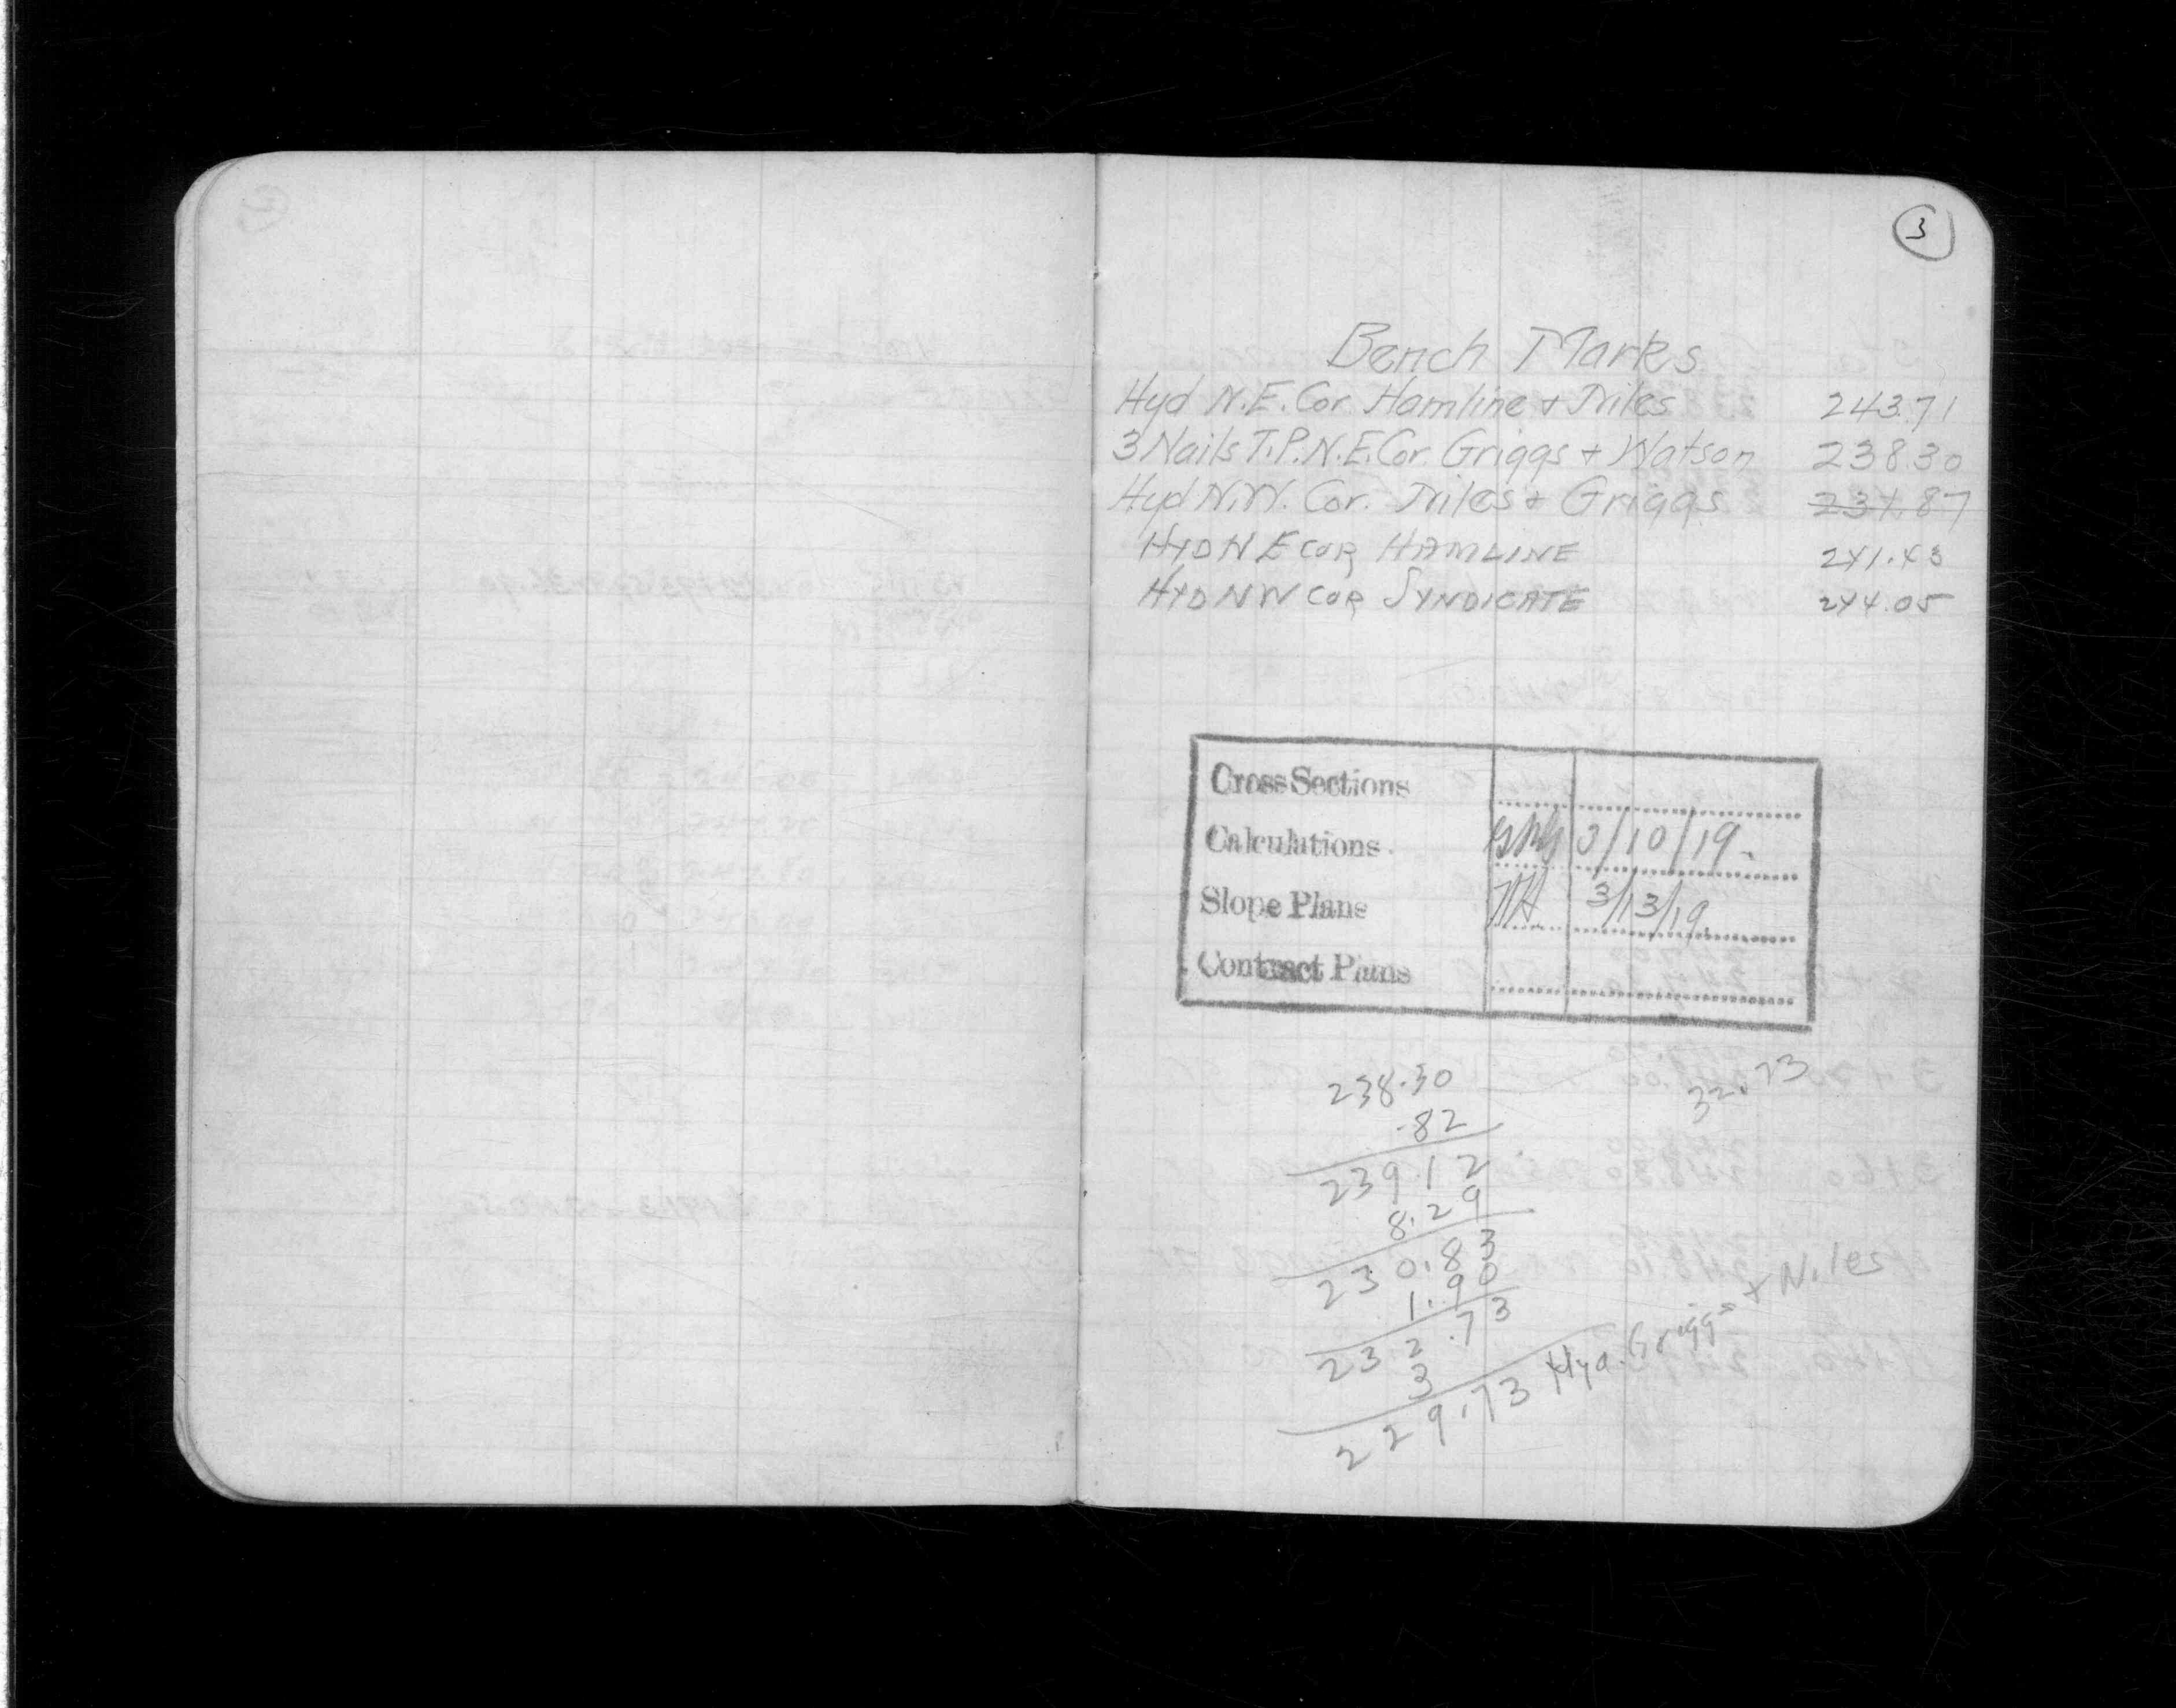 3
Bench Marks
Hyd N.E. Cor. Hamline + Niles 243.71
3 Nails T.P. N.E. Cor. Griggs + Watson 238.30
Hyd N.W. Cor. Niles + Griggs 231.87
HYD N E COR HAMLINE 241.43
HYD N W COR SYNDICATE 244.05
Cross Sections
Calculations 3/10/19
Slope Plans 3/13/19
Contract Plans
238.30 32.73
.82
239.12
8.29
230.83
1.90
232.73
3
229.73 Hyd. Griggs + Niles